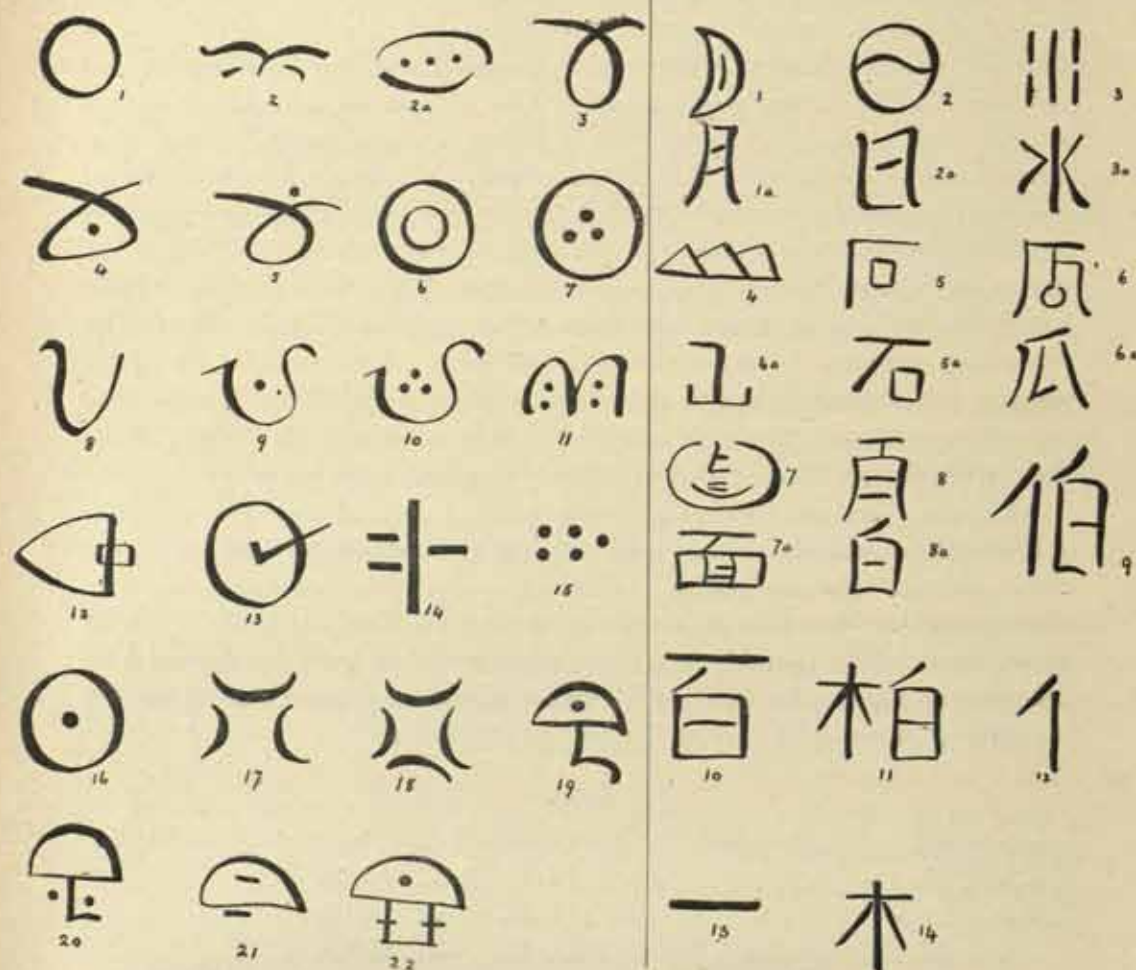 1 2 2a 3
4 5 6 7
8 9 10 11
12 13 14 15
16 17 18 19
20 21 22
1 2 3
月 1a 日 2a 水 3a
4 5 6
山 6a 石 5a 瓜 6a
7 8
面 7a 白 8a 伯 9
百 10 柏 11 亻 12
一 13 木 14